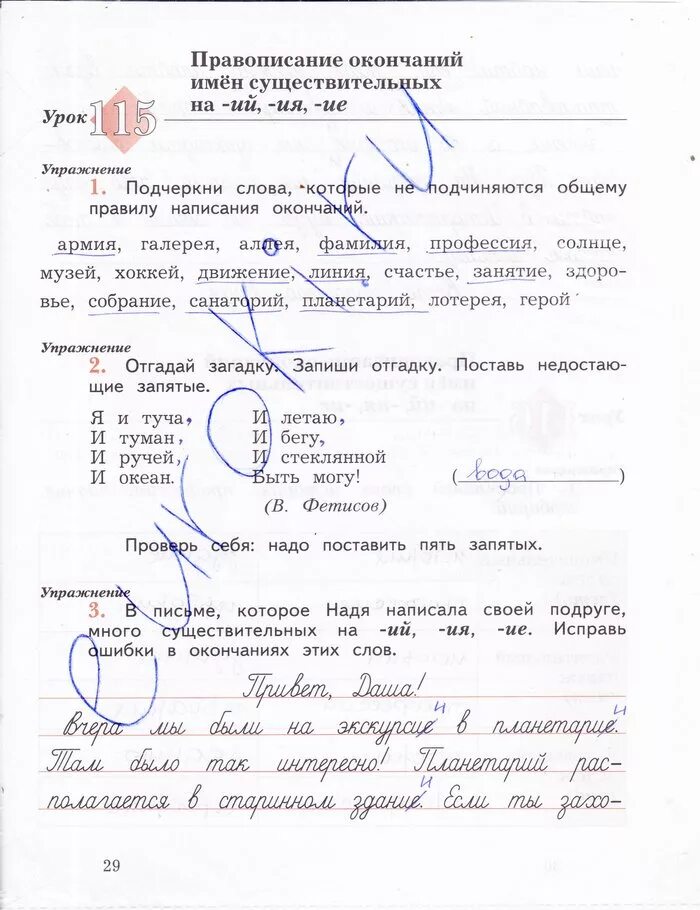 Правописание окончаний
имён существительных
на -ий, -ия, -ие
Урок 115
Упражнение
1. Подчеркни слова, которые не подчиняются общему
правилу написания окончаний.
армия, галерея, аллея, фамилия, профессия, солнце,
музей, хоккей, движение, линия, счастье, занятие, здоро-
вье, собрание, санаторий, планетарий, лотерея, герой
Упражнение
2. Отгадай загадку. Запиши отгадку. Поставь недостаю-
щие запятые.
Я и туча, И летаю,
И туман, И бегу,
И ручей, И стеклянной
И океан. Быть могу! (вода)
(В. Фетисов)
Проверь себя: надо поставить пять запятых.
Упражнение
3. В письме, которое Надя написала своей подруге,
много существительных на -ий, -ия, -ие. Исправь
ошибки в окончаниях этих слов.
Привет, Даша!
и и
Вчера мы были на экскурсие в планетарие.
Там было так интересно! Планетарий рас-
и
полагается в старинном здание. Если ты захо-
29